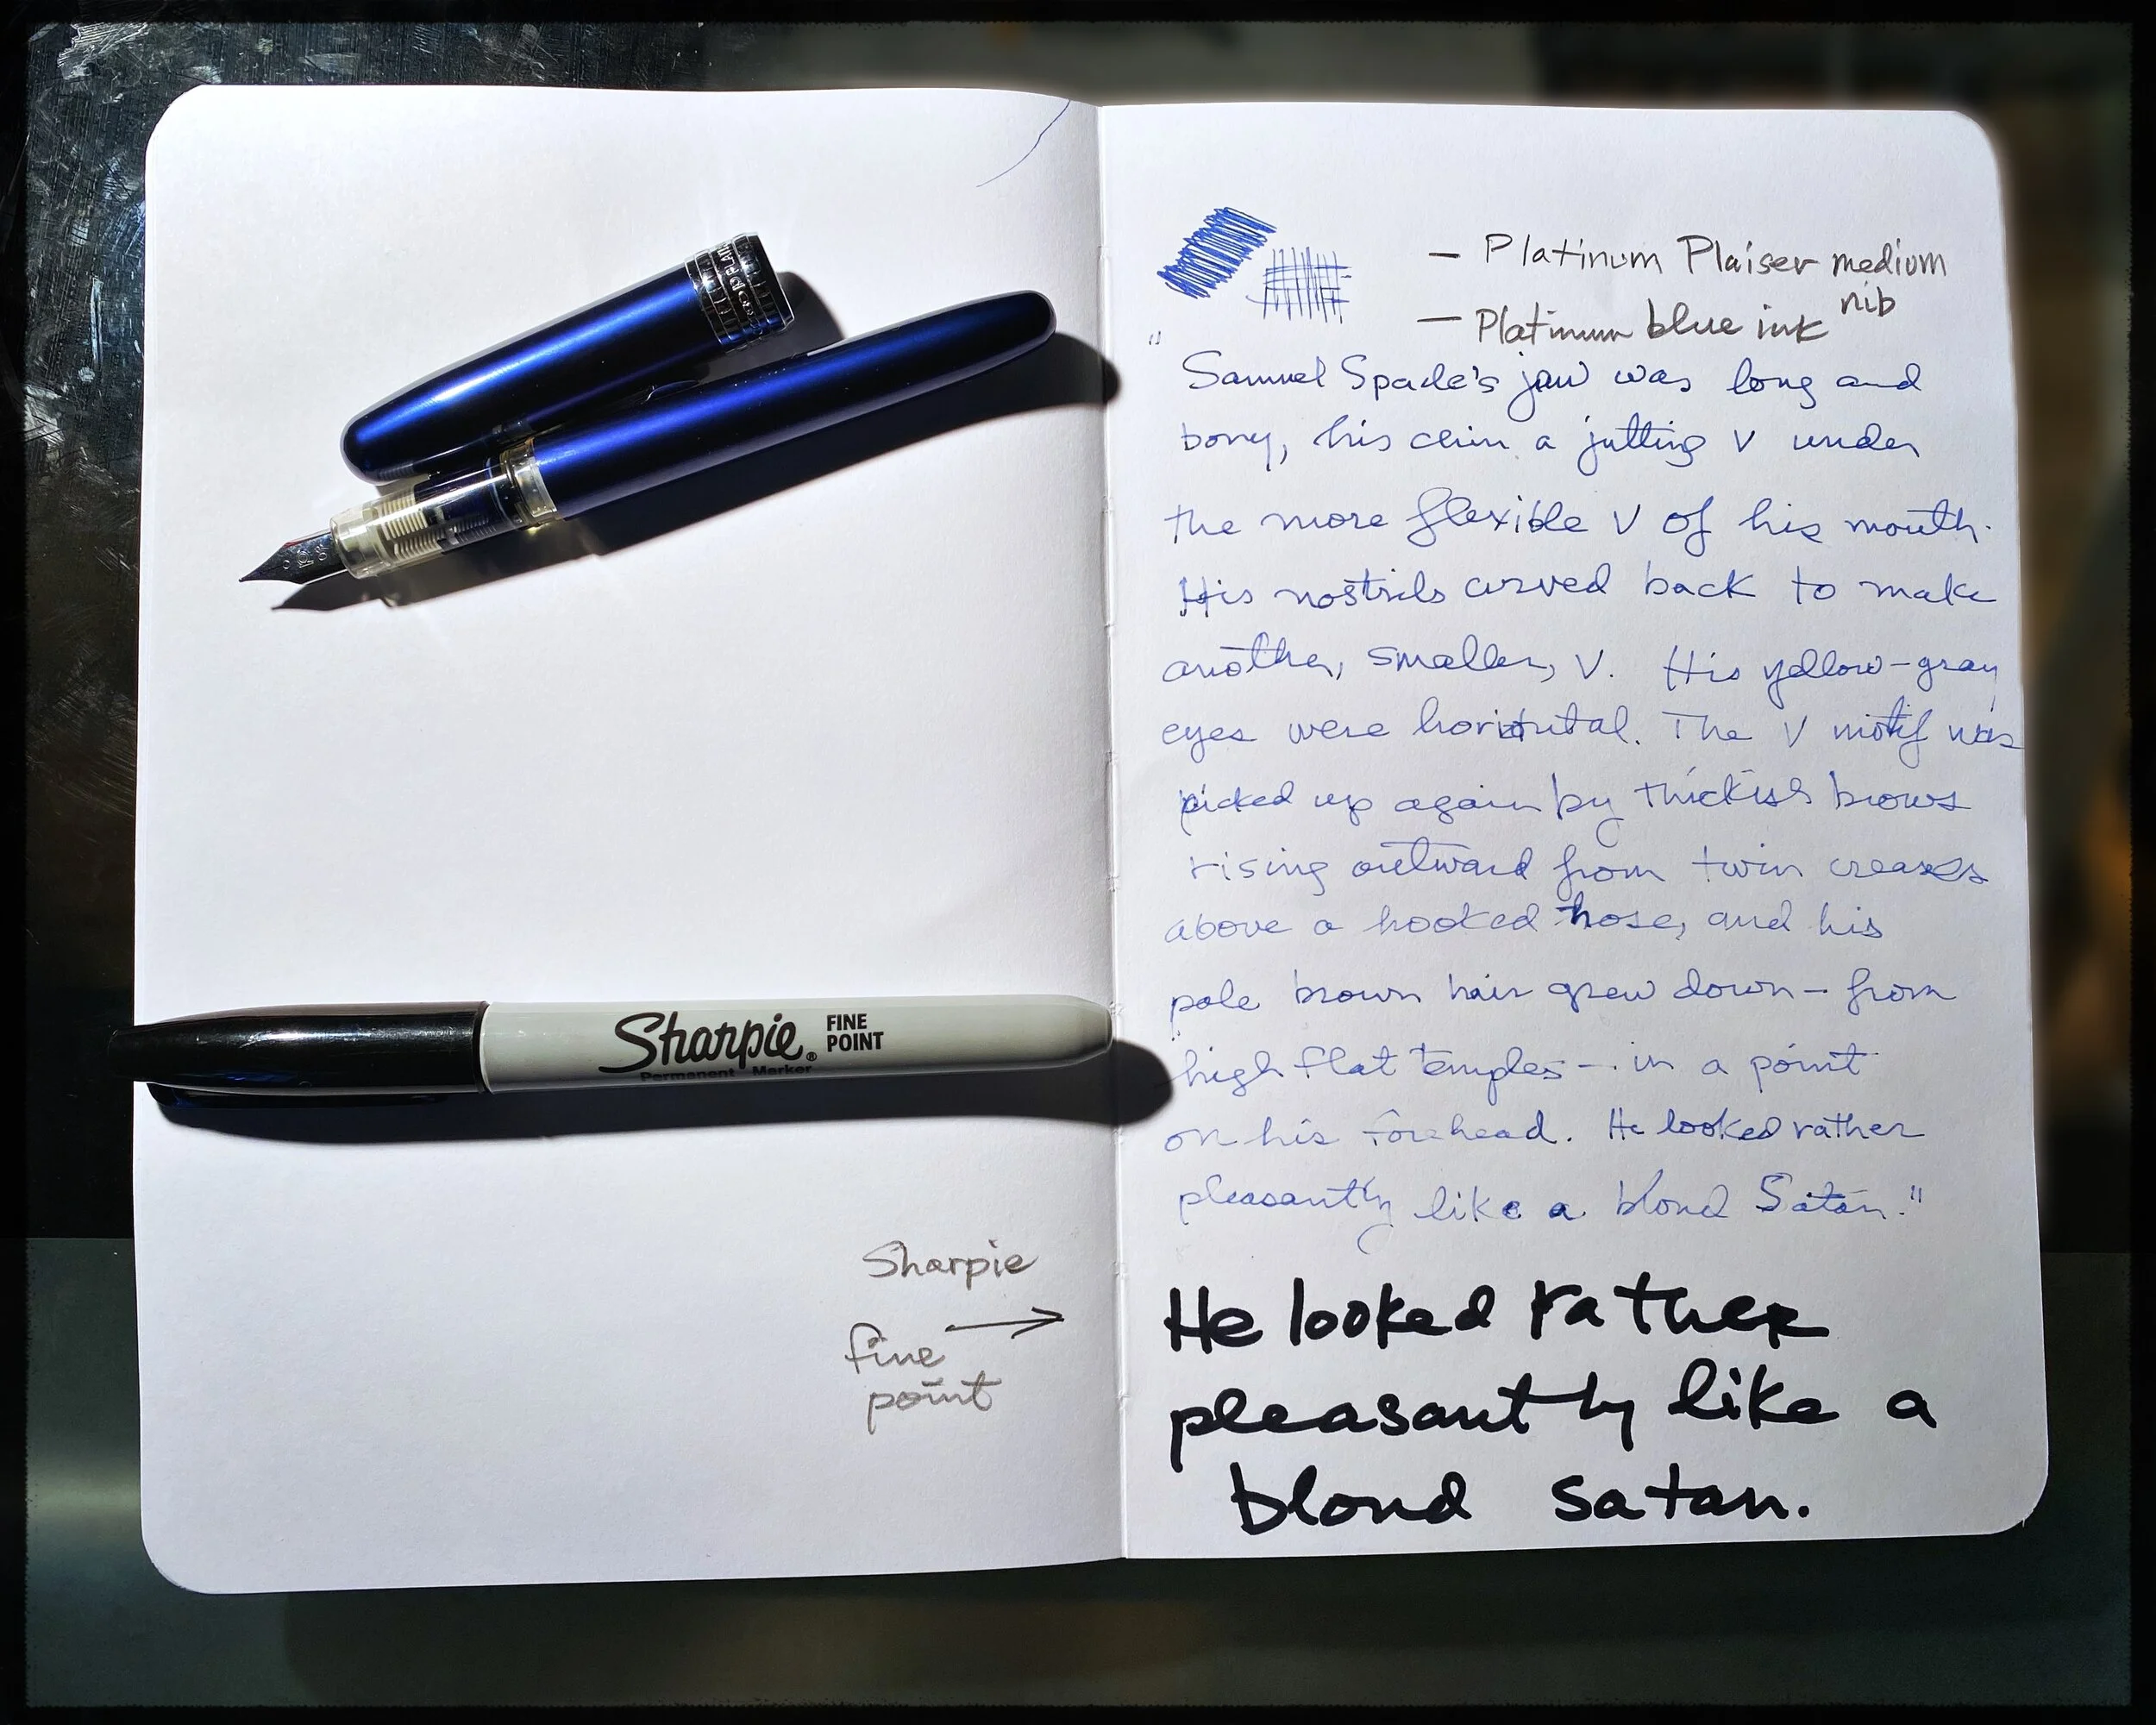 Sharpie FINE
POINT
Permanent Marker
Sharpie
fine
point
— Platinum Plaiser medium
nib
— Platinum blue ink
"Samuel Spade's jaw was long and
bony, his chin a jutting V under
the more flexible V of his mouth.
His nostrils curved back to make
another, smaller, V. His yellow-gray
eyes were horizontal. The V motif was
picked up again by thickish brows
rising outward from twin creases
above a hooked nose, and his
pale brown hair grew down – from
high flat temples – in a point
on his forehead. He looked rather
pleasantly like a blond Satan."
He looked rather
pleasantly like a
blond satan.